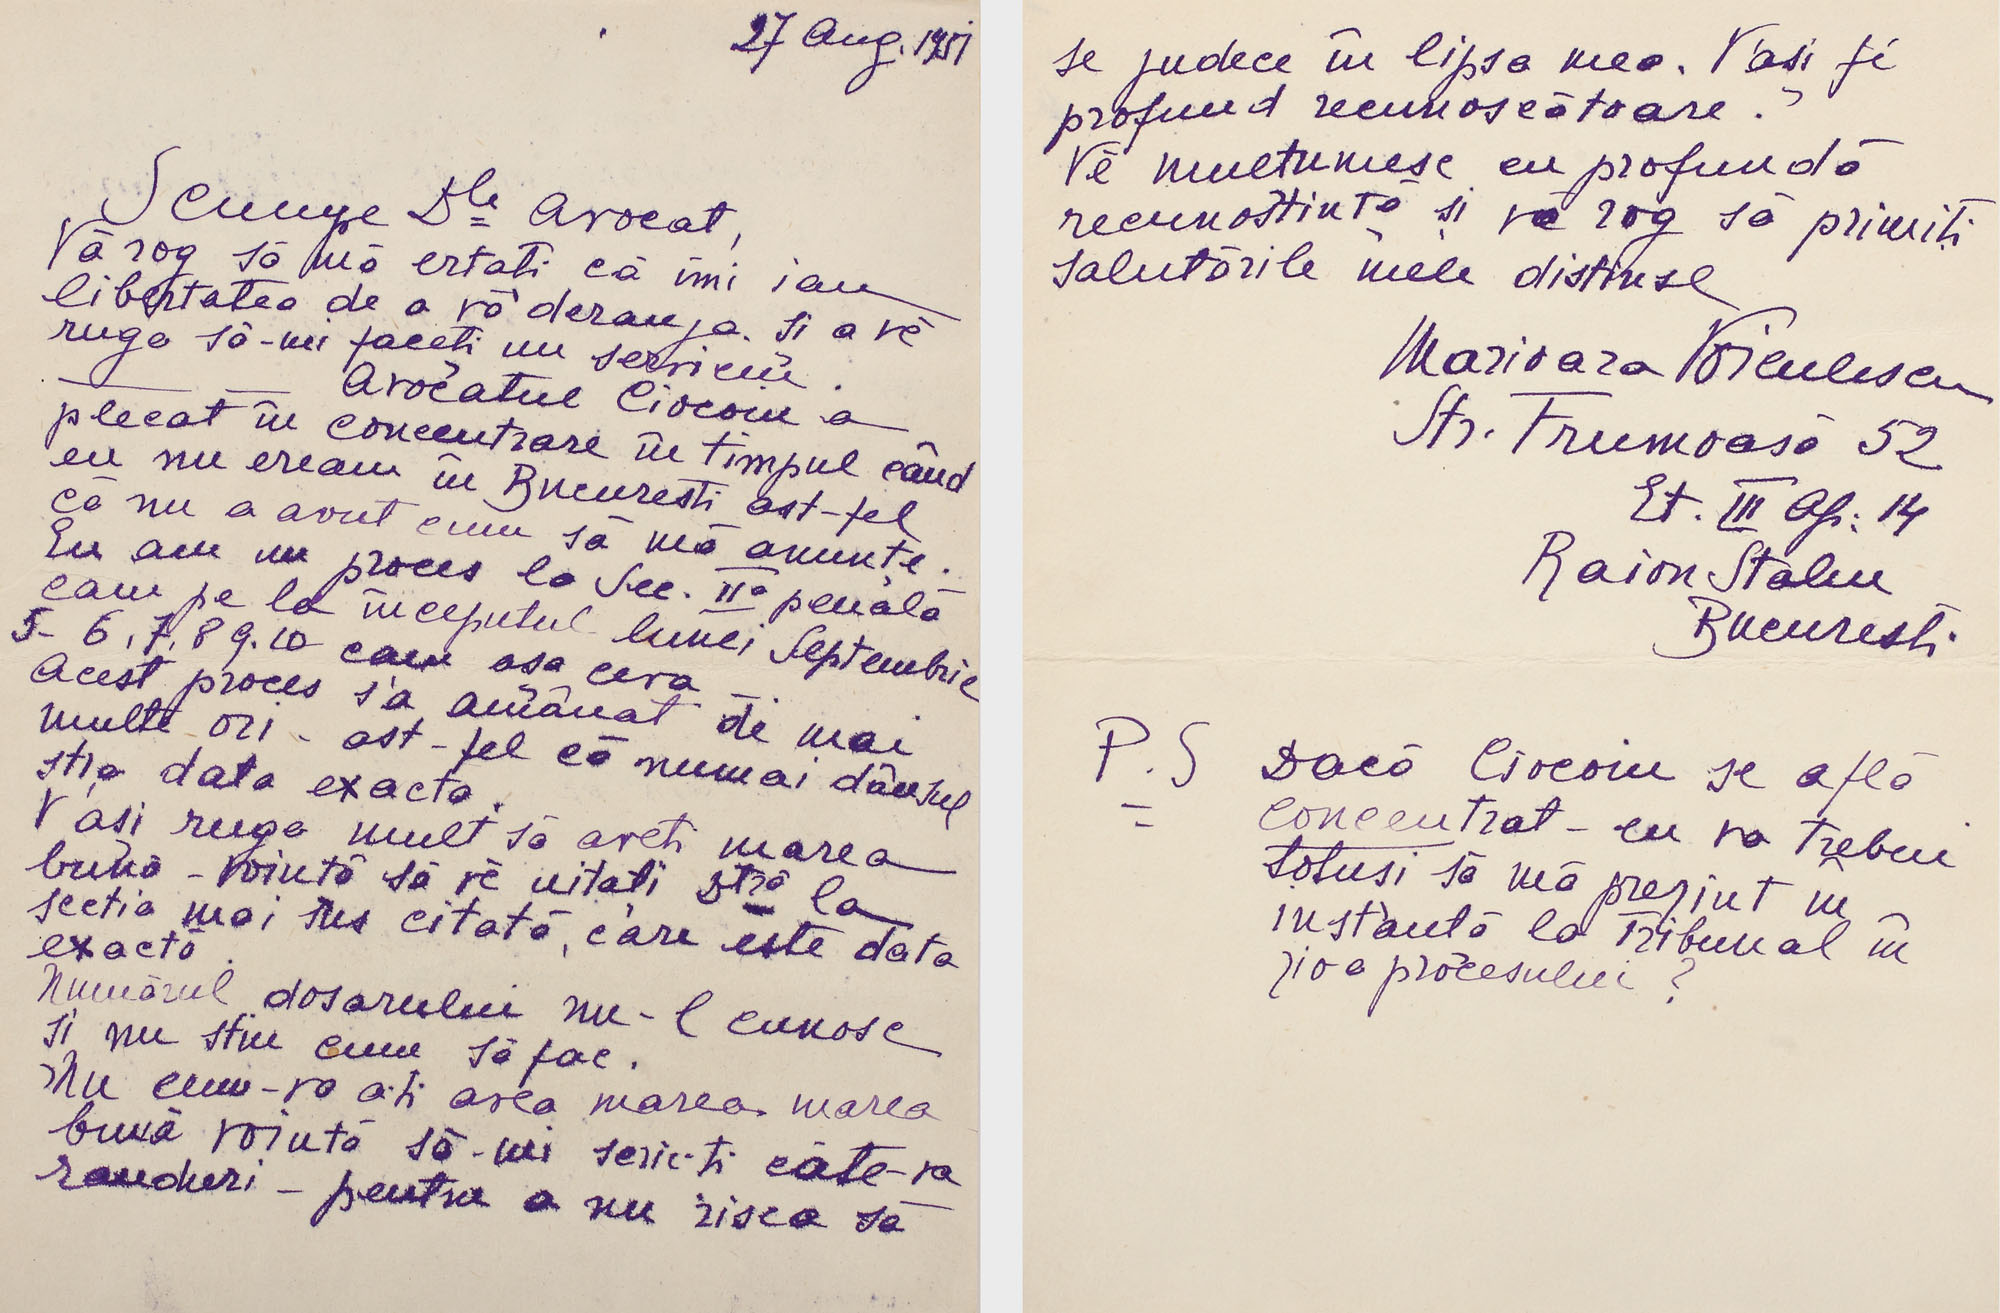 27 Aug. 1951
Scumpe Dle Avocat,
Vă rog să mă ertati că îmi iau
libertatea de a vă deranja si a vē
ruga să-mi faceti un serviciu.
Avocatul Ciocoiu a
plecat în concentrare în timpul când
eu nu eream în Bucuresti ast-fel
că nu a avut cum să mă anunte.
Eu am un proces la Sec. IIa penală
cam pe la începutul lunei Septembrie
5- 6, 7, 8 9. 10 cam asa ceva
Acest proces s'a amânat de mai
multe ori - ast-fel că numai dânsul
stia data exacta.
V'asi ruga mult să aveti marea
bună-vointă să vē uitati Dtră la
sectia mai sus citată, care este data
exactă.
Numărul dosarului nu-l cunosc
si nu stiu cum să fac.
Nu cum-va ati avea marea marea
bună vointă să-mi scrieti câte-va
randuri - pentru a nu risca să
se judece în lipsa mea. V'asi fi
profund recunoscătoare.
Vē multumesc cu profundă
recunostintă si vă rog să primiti
salutările mele distinse
Marioara Voiculescu
Str. Frumoasă 52
Et. III Ap: 14
Raion Stalin
Bucuresti.
P.S Dacă Ciocoiu se află
concentrat - eu va trebui
totusi să mă prezint în
instantă la Tribunal în
zioa procesului?